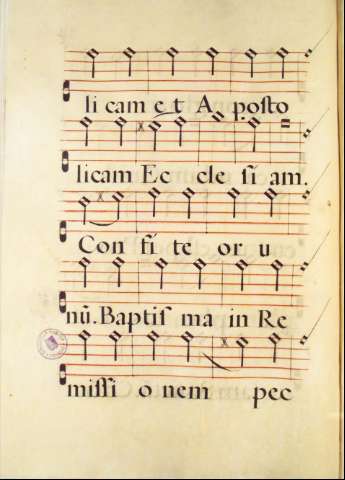 li cam et A posto
licam Ec cle si am.
Con fi te or u
nũ. Baptiſ ma in Re
miſſi o nem pec